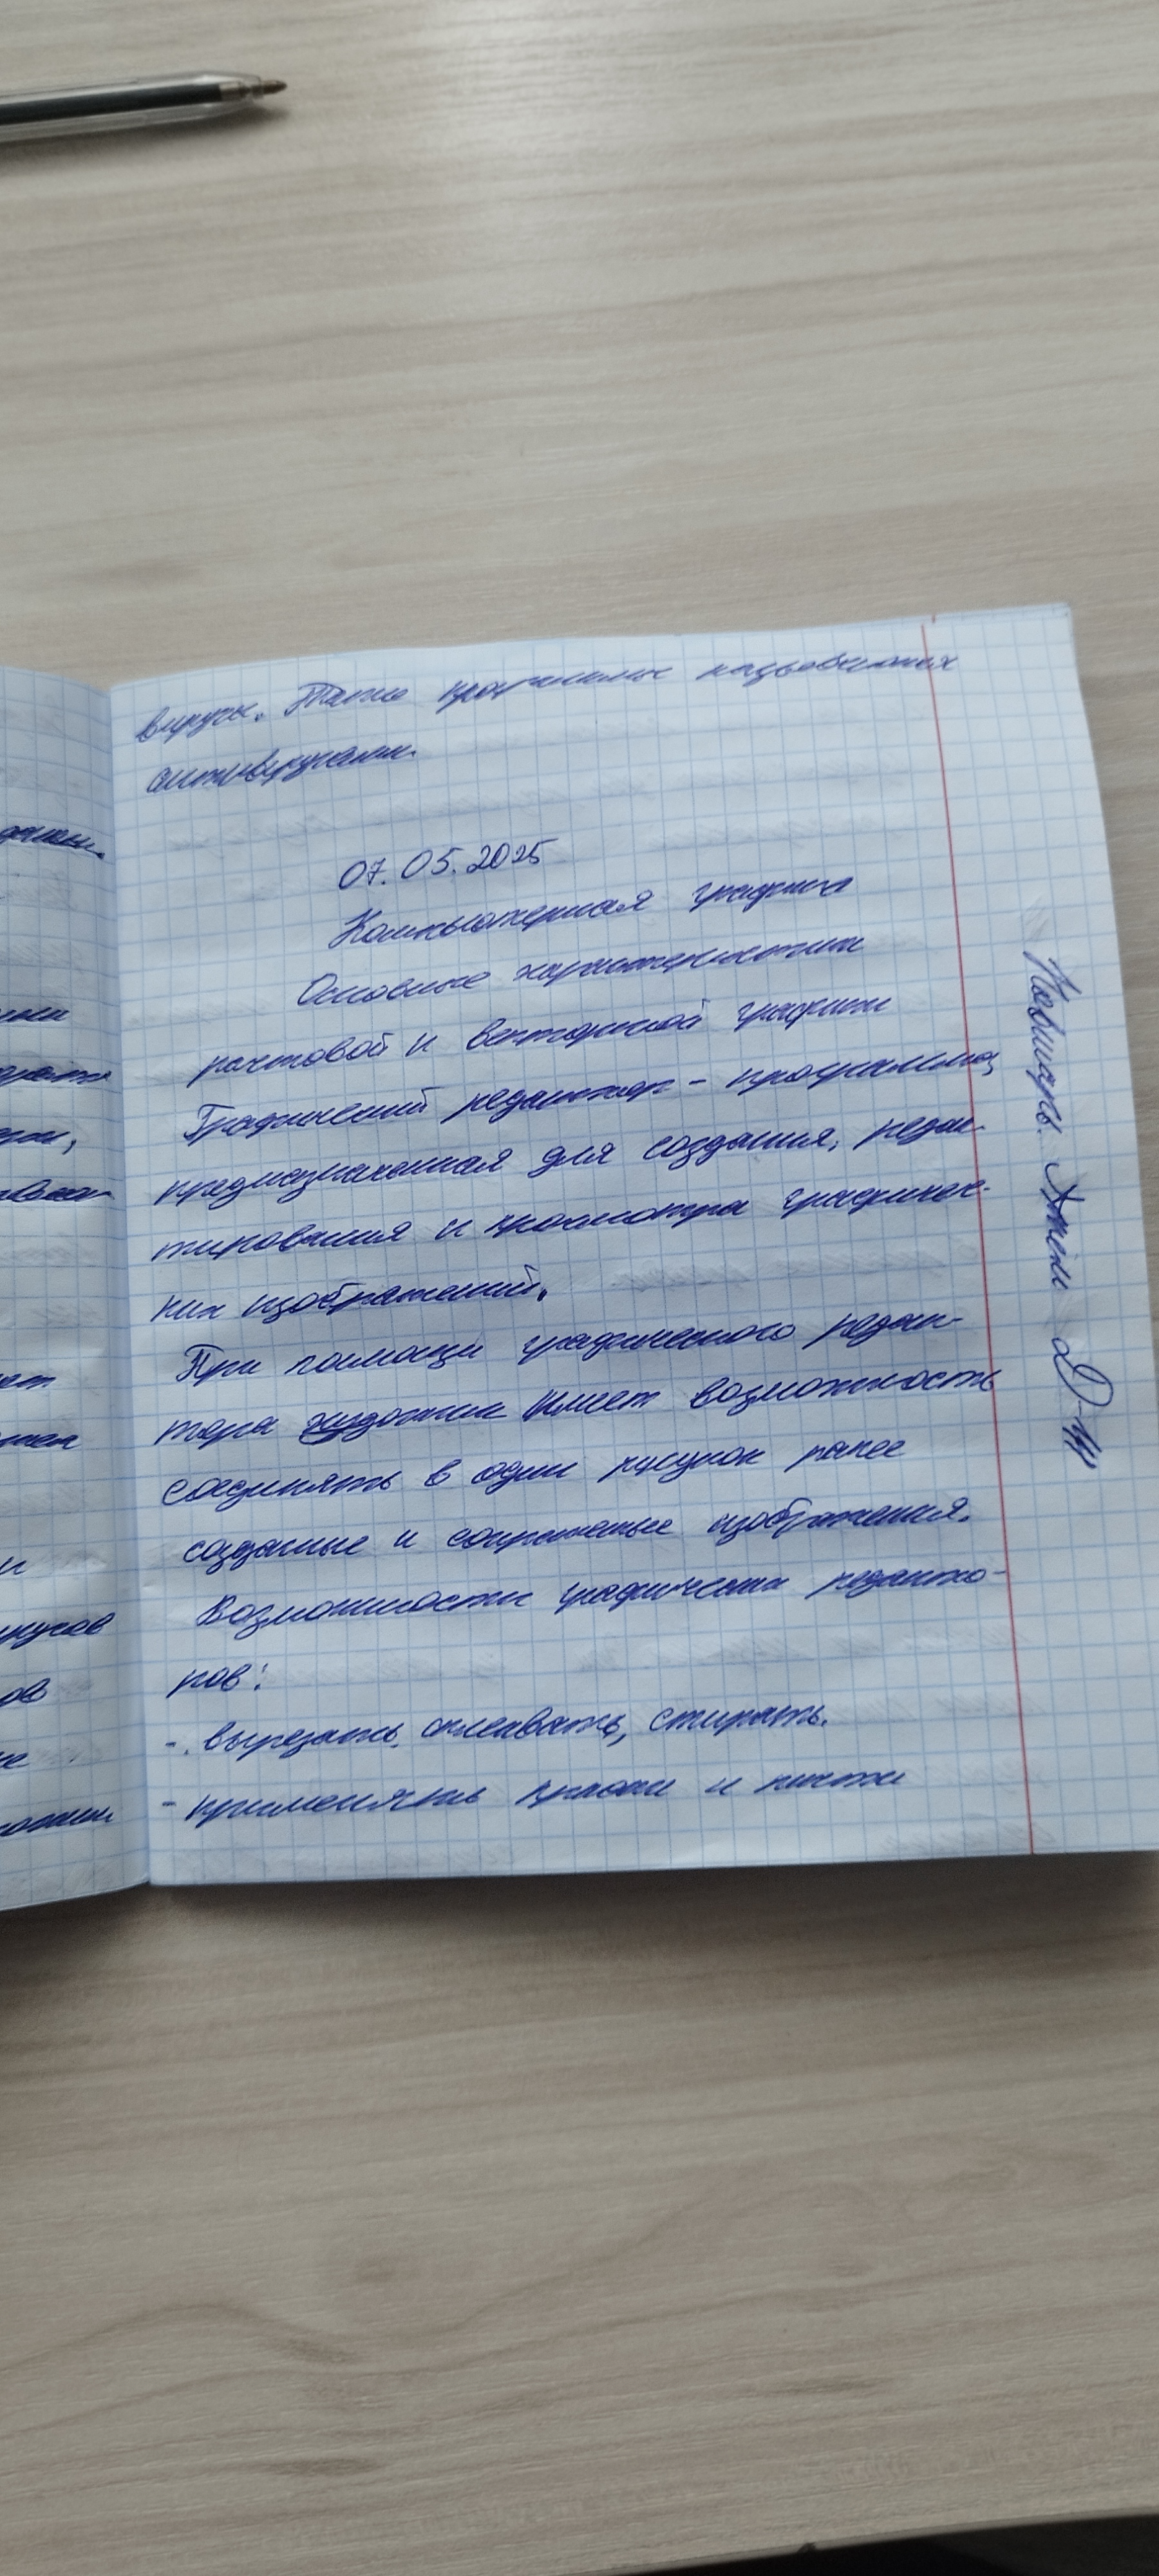 вирусы. Такие программы называются
антивирусами.
07.05.2025
Компьютерная графика
Основные характеристики
растовой и векторной графики
Графический редактор - программа,
предназначенная для создания, редак-
тирования и просмотра графичес-
ких изображений.
При помощи графического редак-
тора художник имеет возможность
соединять в один рисунок ранее
созданные и сохраненные изображения.
Возможности графических редакто-
ров:
- вырезать, склеивать, стирать.
- применять краски и кисти
Д-14